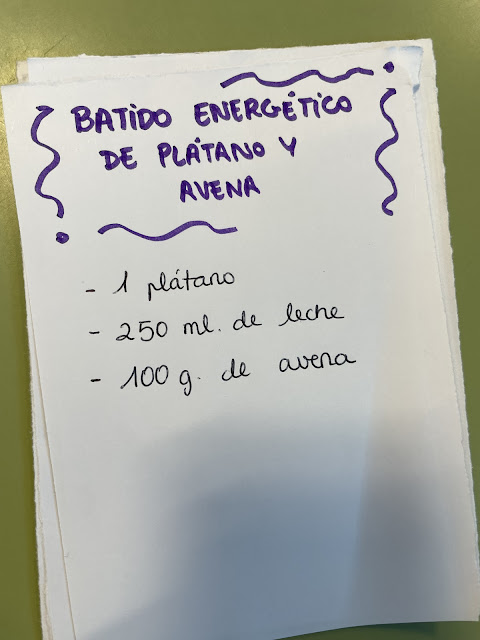 BATIDO ENERGÉTICO
DE PLÁTANO Y
AVENA
- 1 plátano
- 250 ml. de leche
- 100 g. de avena